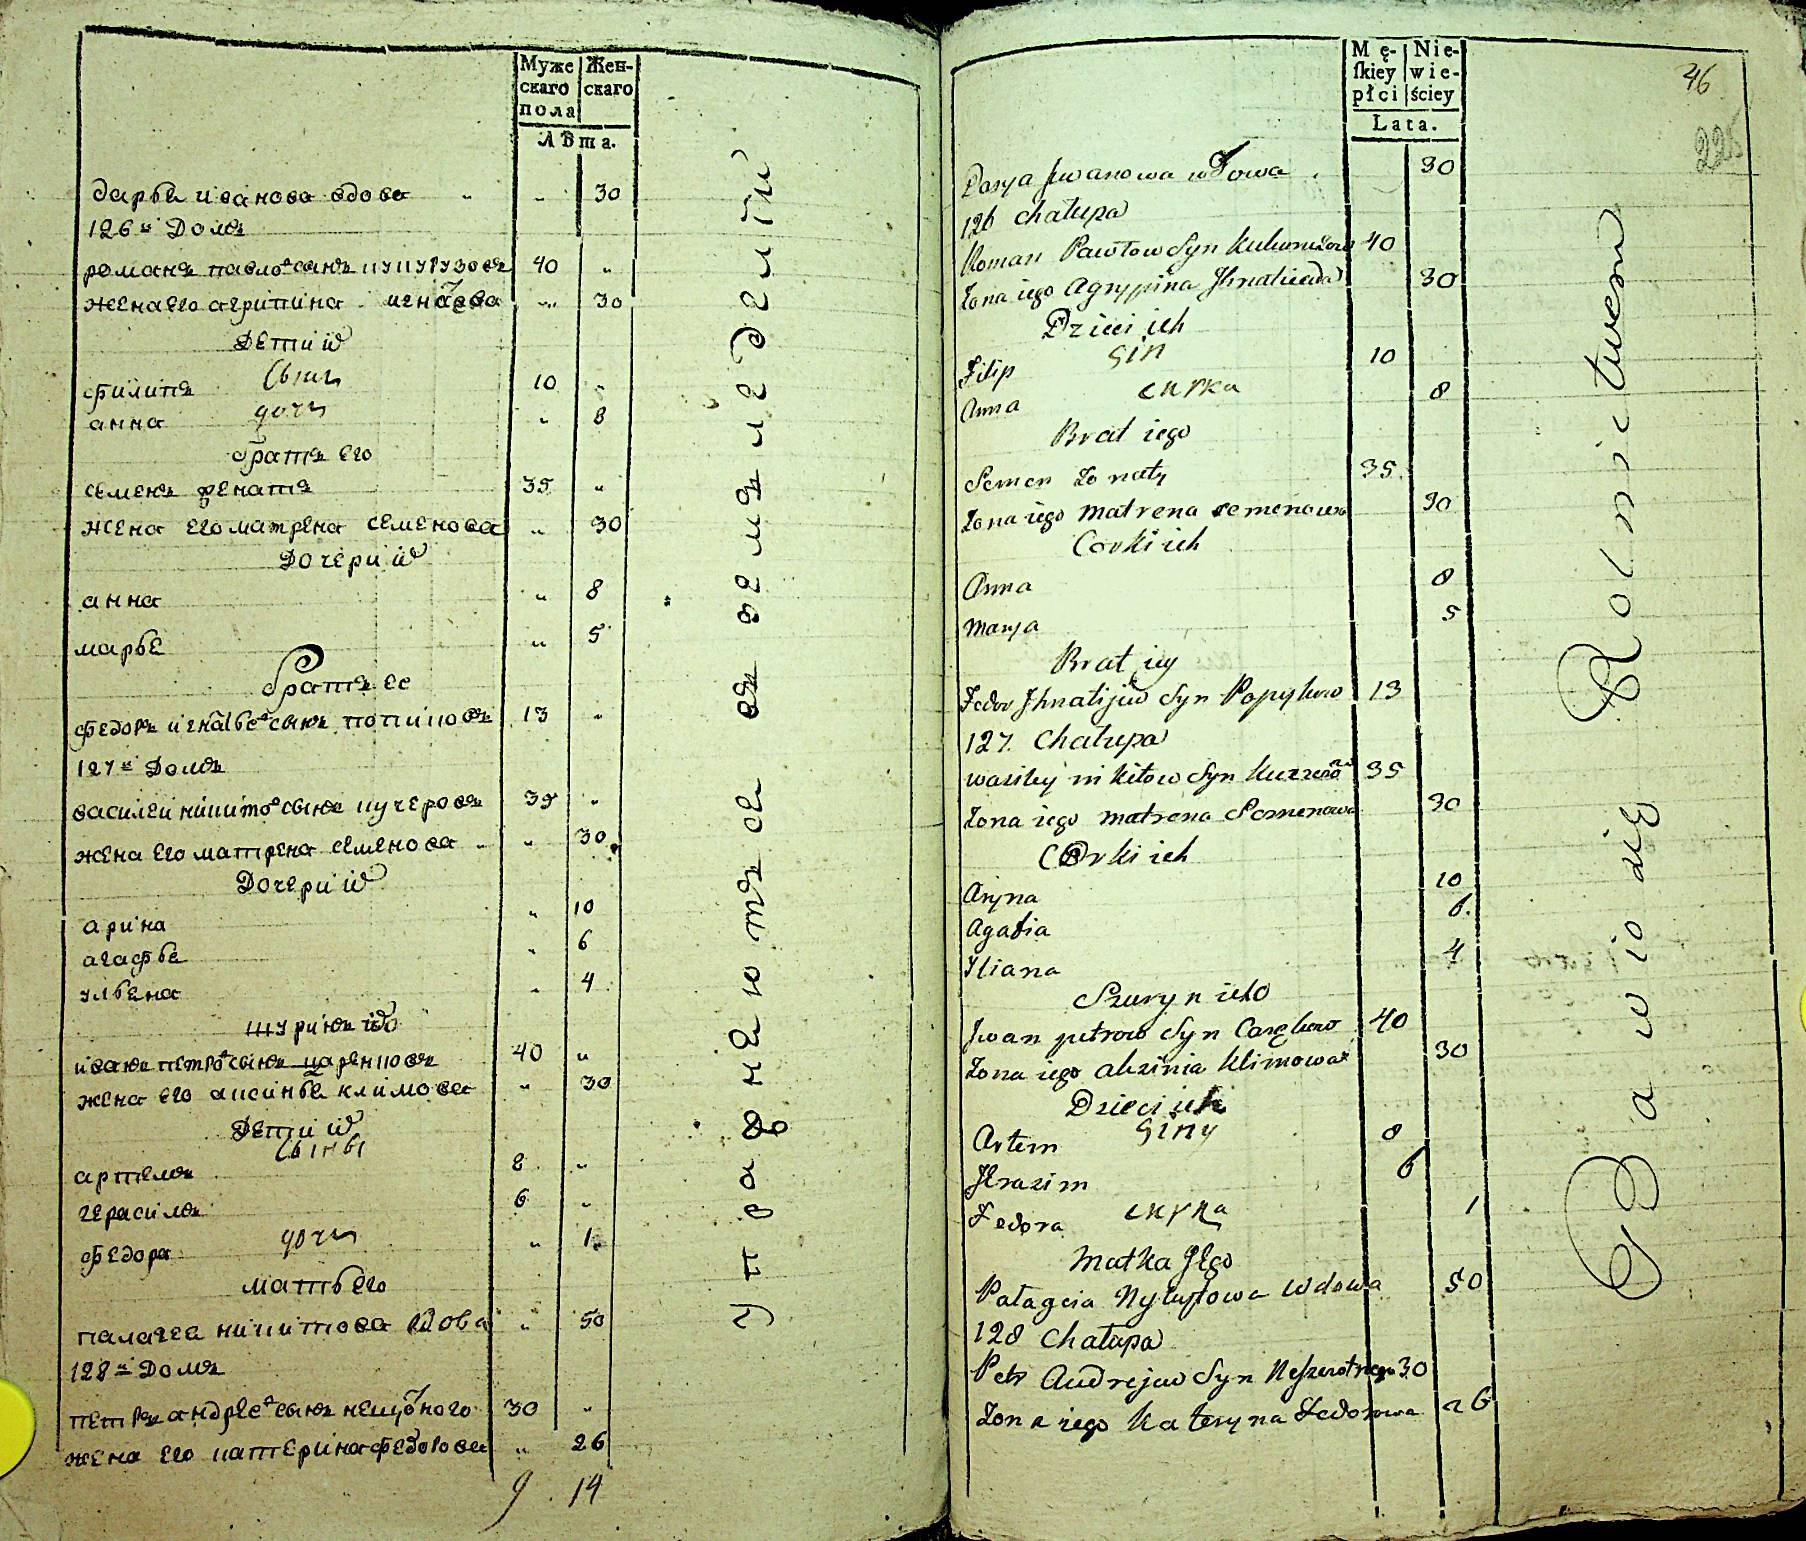 Муже
скаго
пола
Жен-
скаго
Лѣта.
дарья иванова вдова " " 30
126 й Домъ
романъ павловъ сынъ кукурузовъ 40 "
жена его агрипина игнатова " 30
Дети ихъ
Сынъ
филипъ 10 "
дочь
анна " 8
братъ его
семенъ женатъ 35 "
жена его матрена семенова " 30
Дочери ихъ
анна " 8
марья " 5
братъ ее
федоръ игнатьевъ сынъ попиковъ 13 "
127 й Домъ
василеи никитовъ сынъ кучеровъ 35 "
жена его матрена семенова " 30
Дочери ихъ
арина " 10
агафья " 6
ульена " 4
шуринъ его
иванъ петровъ сынъ царенковъ 40 "
жена его аксинья климова " 30
Дети ихъ
Сыны
артемъ 8 "
герасимъ 6 "
дочь
федора " 1
мать его
палагеа никитова вдова " 50
128 й Домъ
петръ андреевъ сынъ 30 "
жена его катерина федорова " 26
9 . 14
упражняются въ земледелии
46
225
Mę-
ſkiey
płci
Nie-
wie-
ściey
Lata.
Darya Jwanowa wdowa 30
126 Chałupa
Roman Pawłow Syn 40
Żona iego Agrypina 30
Dzieci ich
Sin
Filip 10
curka
Anna 8
Brat iego
Semen Żonaty 35
Żona iego Matrena Semenowa 30
Corki ich
Anna 8
Marya 5
Brat iey
Fedor Jhnatijew Syn Popykow 13
127. Chałupa
Wasiley Nikitow Syn 35
Żona iego Matrena Semenowa 30
Corki ich
Aryna 10
Agafia 6.
Iliana 4
Szuryn ieho
Jwan Petrow Syn Carękow 40
Żona iego Aksinia Klimowa 30
Dzieci ich
Siny
Artem 8
Jerasim 6
curka
Fedora 1
Matka Jego
Pałageia wdowa 50
128 Chałupa
Petr Andrejew Syn 30
Żona iego Kateryna Fedorowa 26
Bawio się Rolnictwem